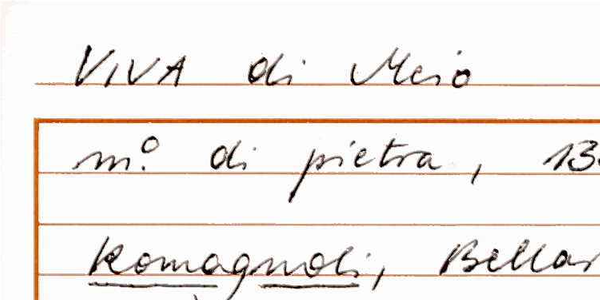 VIVA di Meio
m.º di pietra, 13
Romagnoli, Bellar